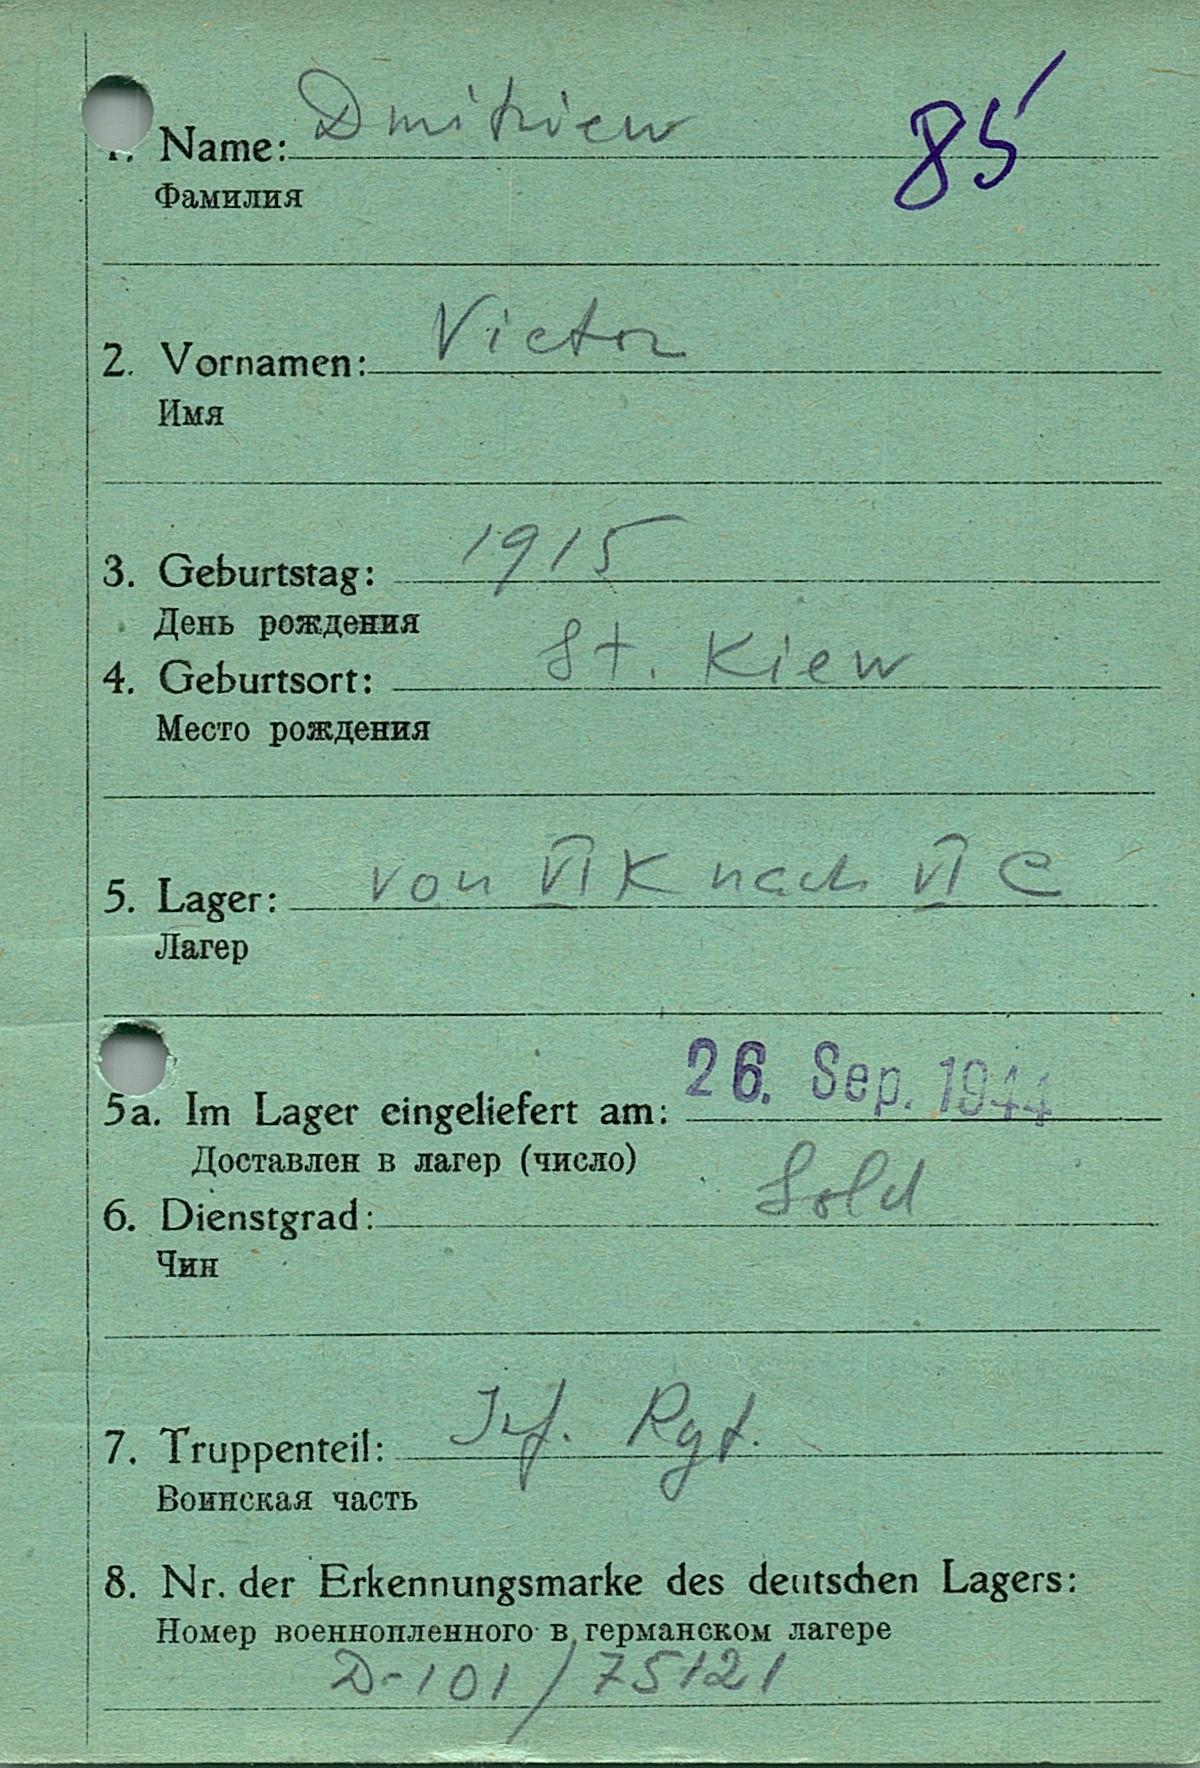 1. Name: Dmitriew 85
Фамилия
2. Vornamen: Victor
Имя
3. Geburtstag: 1915
День рождения
4. Geburtsort: St. Kiew
Место рождения
5. Lager: von VI K nach VI C
Лагер
5a. Im Lager eingeliefert am: 26. Sep. 1944
Доставлен в лагер (число)
6. Dienstgrad: Sold
Чин
7. Truppenteil: Inf. Rgt.
Воинская часть
8. Nr. der Erkennungsmarke des deutschen Lagers:
Номер военнопленного в германском лагере
D-101/75121